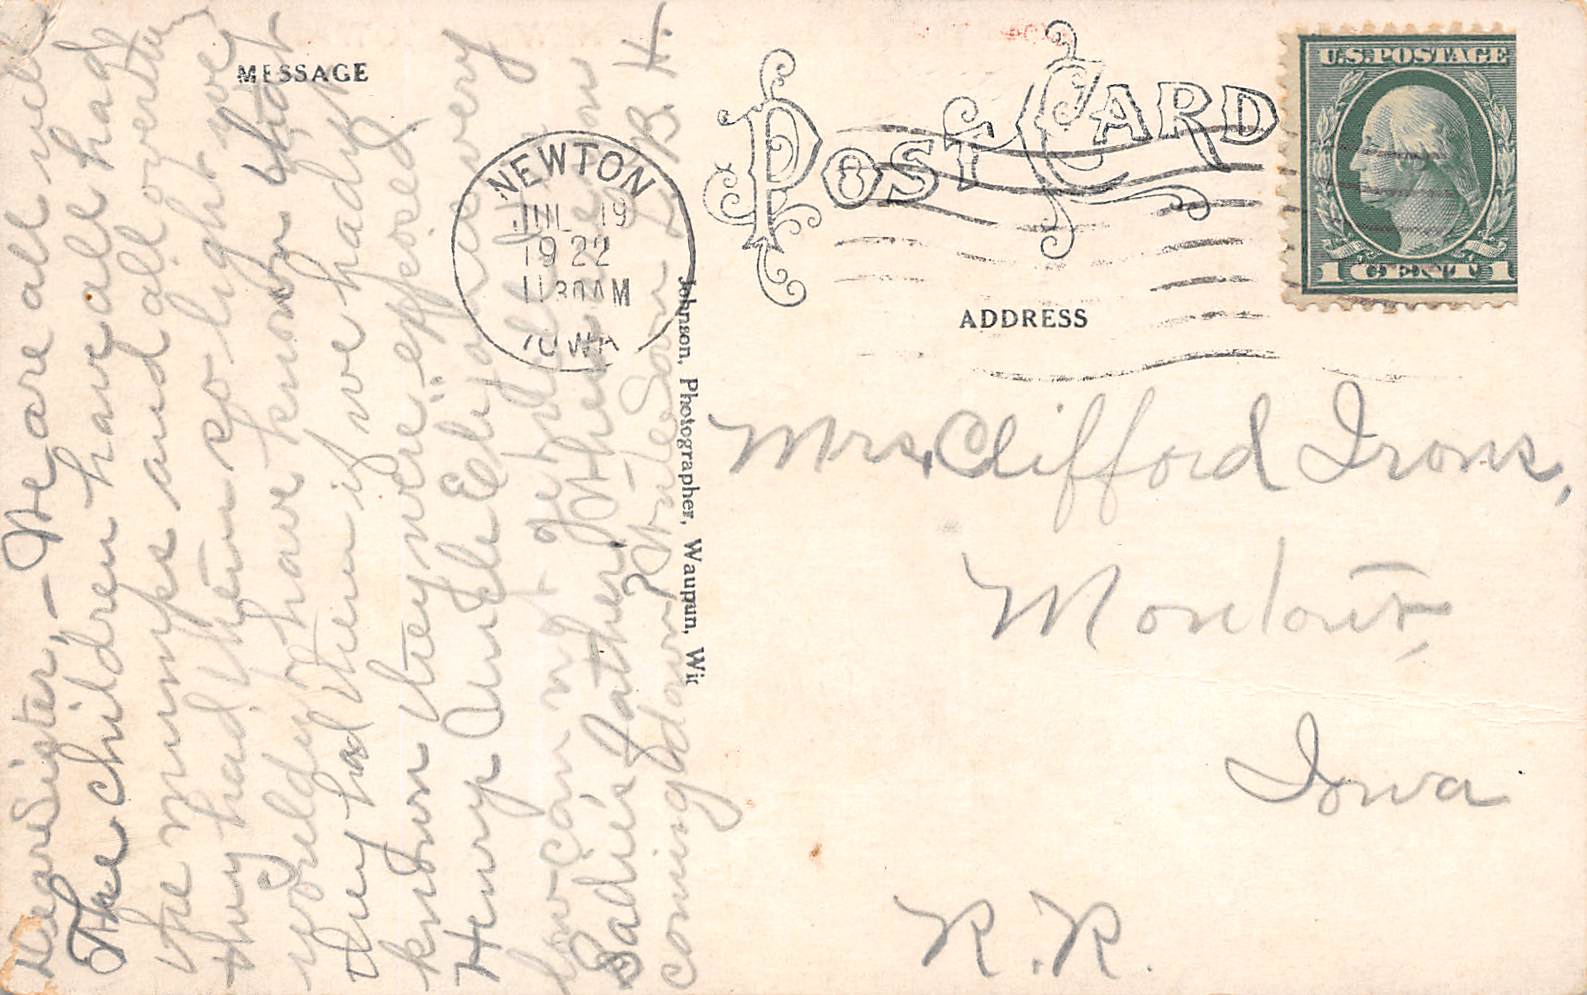 MESSAGE
POST CARD
U.S. POSTAGE
1 CENT 1
NEWTON
JUL 19
1922
1130AM
IOWA
ADDRESS
Mrs. Clifford Irons,
Montour,
Iowa
R.R.
Johnson, Photographer, Waupun, Wis
Dear Sister, - We are all well
The children have all had
the mumps and all over them
They had them so light we
wouldn't have known that
they had them if we hadn't
known they were "exposed"
Henry Aunt Eliza is very
low can not
Sadie's father
coming down?
B. H.